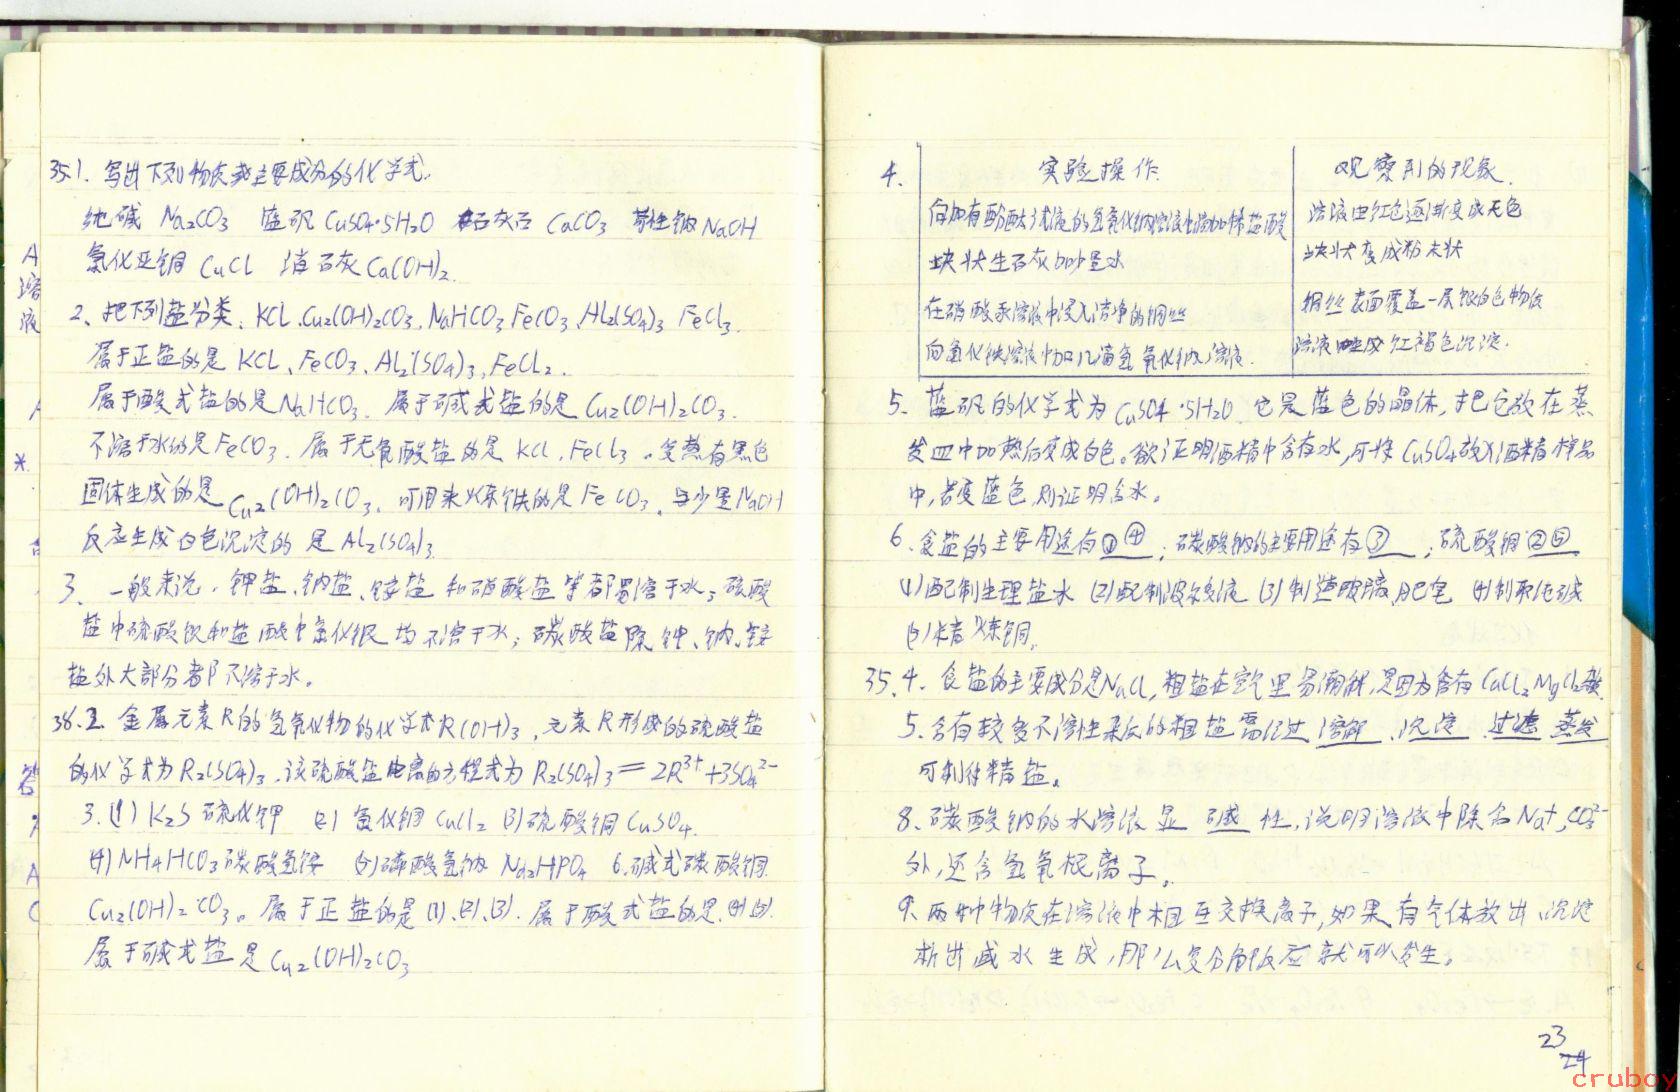 35.1. 写出下列物质或主要成分的化学式.
纯碱 Na₂CO₃ 蓝矾 CuSO₄·5H₂O 石灰石 CaCO₃ 苛性钠 NaOH
氯化亚铜 CuCl 消石灰 Ca(OH)₂.
2、把下列盐分类: KCl、Cu₂(OH)₂CO₃、NaHCO₃ FeCO₃、Al₂(SO₄)₃ FeCl₃.
属于正盐的是 KCl、FeCO₃、Al₂(SO₄)₃, FeCl₂.
属于酸式盐的是 NaHCO₃. 属于碱式盐的是 Cu₂(OH)₂CO₃.
不溶于水的是 FeCO₃. 属于无氧酸盐的是 KCl, FeCl₃。受热有黑色
固体生成的是 Cu₂(OH)₂CO₃. 可用来火东铁的是 FeCO₃. 与少量NaOH
反应生成白色沉淀的是 Al₂(SO₄)₃.
3、一般来说, 钾盐、钠盐、铵盐和硝酸盐等都易溶于水; 硫酸
盐中硫酸钡和盐酸中氯化银均不溶于水; 碳酸盐除钾、钠、铵
盐外大部分都不溶于水。
36.2 金属元素R的氢氧化物的化学式R(OH)₃, 元素R形成的硫酸盐
的化学式为R₂(SO₄)₃, 该硫酸盐电离的方程式为 R₂(SO₄)₃ = 2R³⁺+3SO₄²⁻
3. (1) K₂S 硫化钾 (2) 氯化铜 CuCl₂ (3)硫酸铜 CuSO₄.
(4) NH₄HCO₃ 碳酸氢铵 (5)磷酸氢钠 Na₂HPO₄ 6.碱式碳酸铜
Cu₂(OH)₂CO₃。属于正盐的是 (1)、(2)、(3). 属于酸式盐的是.(4)(5).
属于碱式盐是 Cu₂(OH)₂CO₃
A
溶
液
A
*
答
A
C
4. 实验操作 观察到的现象.
向加有酚酞试液的氢氧化钠溶液中滴加稀盐酸 溶液由红色逐渐变成无色
块状生石灰加少量水 块状变成粉末状
在硝酸汞溶液中浸入洁净的铜丝 铜丝表面覆盖一层银白色物质
向氯化铁溶液中加几滴氢氧化钠溶液. 溶液生成红褐色沉淀.
5. 蓝矾的化学式为 CuSO4·5H2O 它是蓝色的晶体, 把它放在蒸
发皿中加热后变成白色。欲证明酒精中含有水, 可将CuSO₄放入酒精样品
中, 若变蓝色, 则证明含水。
6、食盐的主要用途有①④; 碳酸钠的主要用途有③; 硫酸铜②⑤
(1)配制生理盐水 (2)配制波尔多液 (3)制造玻璃、肥皂 (4)制取纯碱
(5)精火东铜.
35.4. 食盐的主要成分是NaCl, 粗盐在空气里易潮解, 是因为含有 CaCl₂ MgCl₂
5. 含有较多不溶性杂质的粗盐需经过 溶解、沉淀、过滤 蒸发
可制得精盐。
8、碳酸钠的水溶液显 碱 性, 说明溶液中除含Na⁺, CO₃²⁻
外, 还含氢氧根离子。
9、两种物质在溶液中相互交换离子, 如果有气体放出、沉淀
析出或水生成, 那么复分解反应就可以发生。
23
24
cruboy